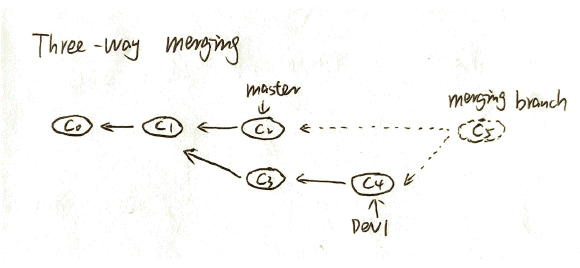 Three-way merging
master
merging branch
C0 C1 C2 C5
C3 C4
Dev1